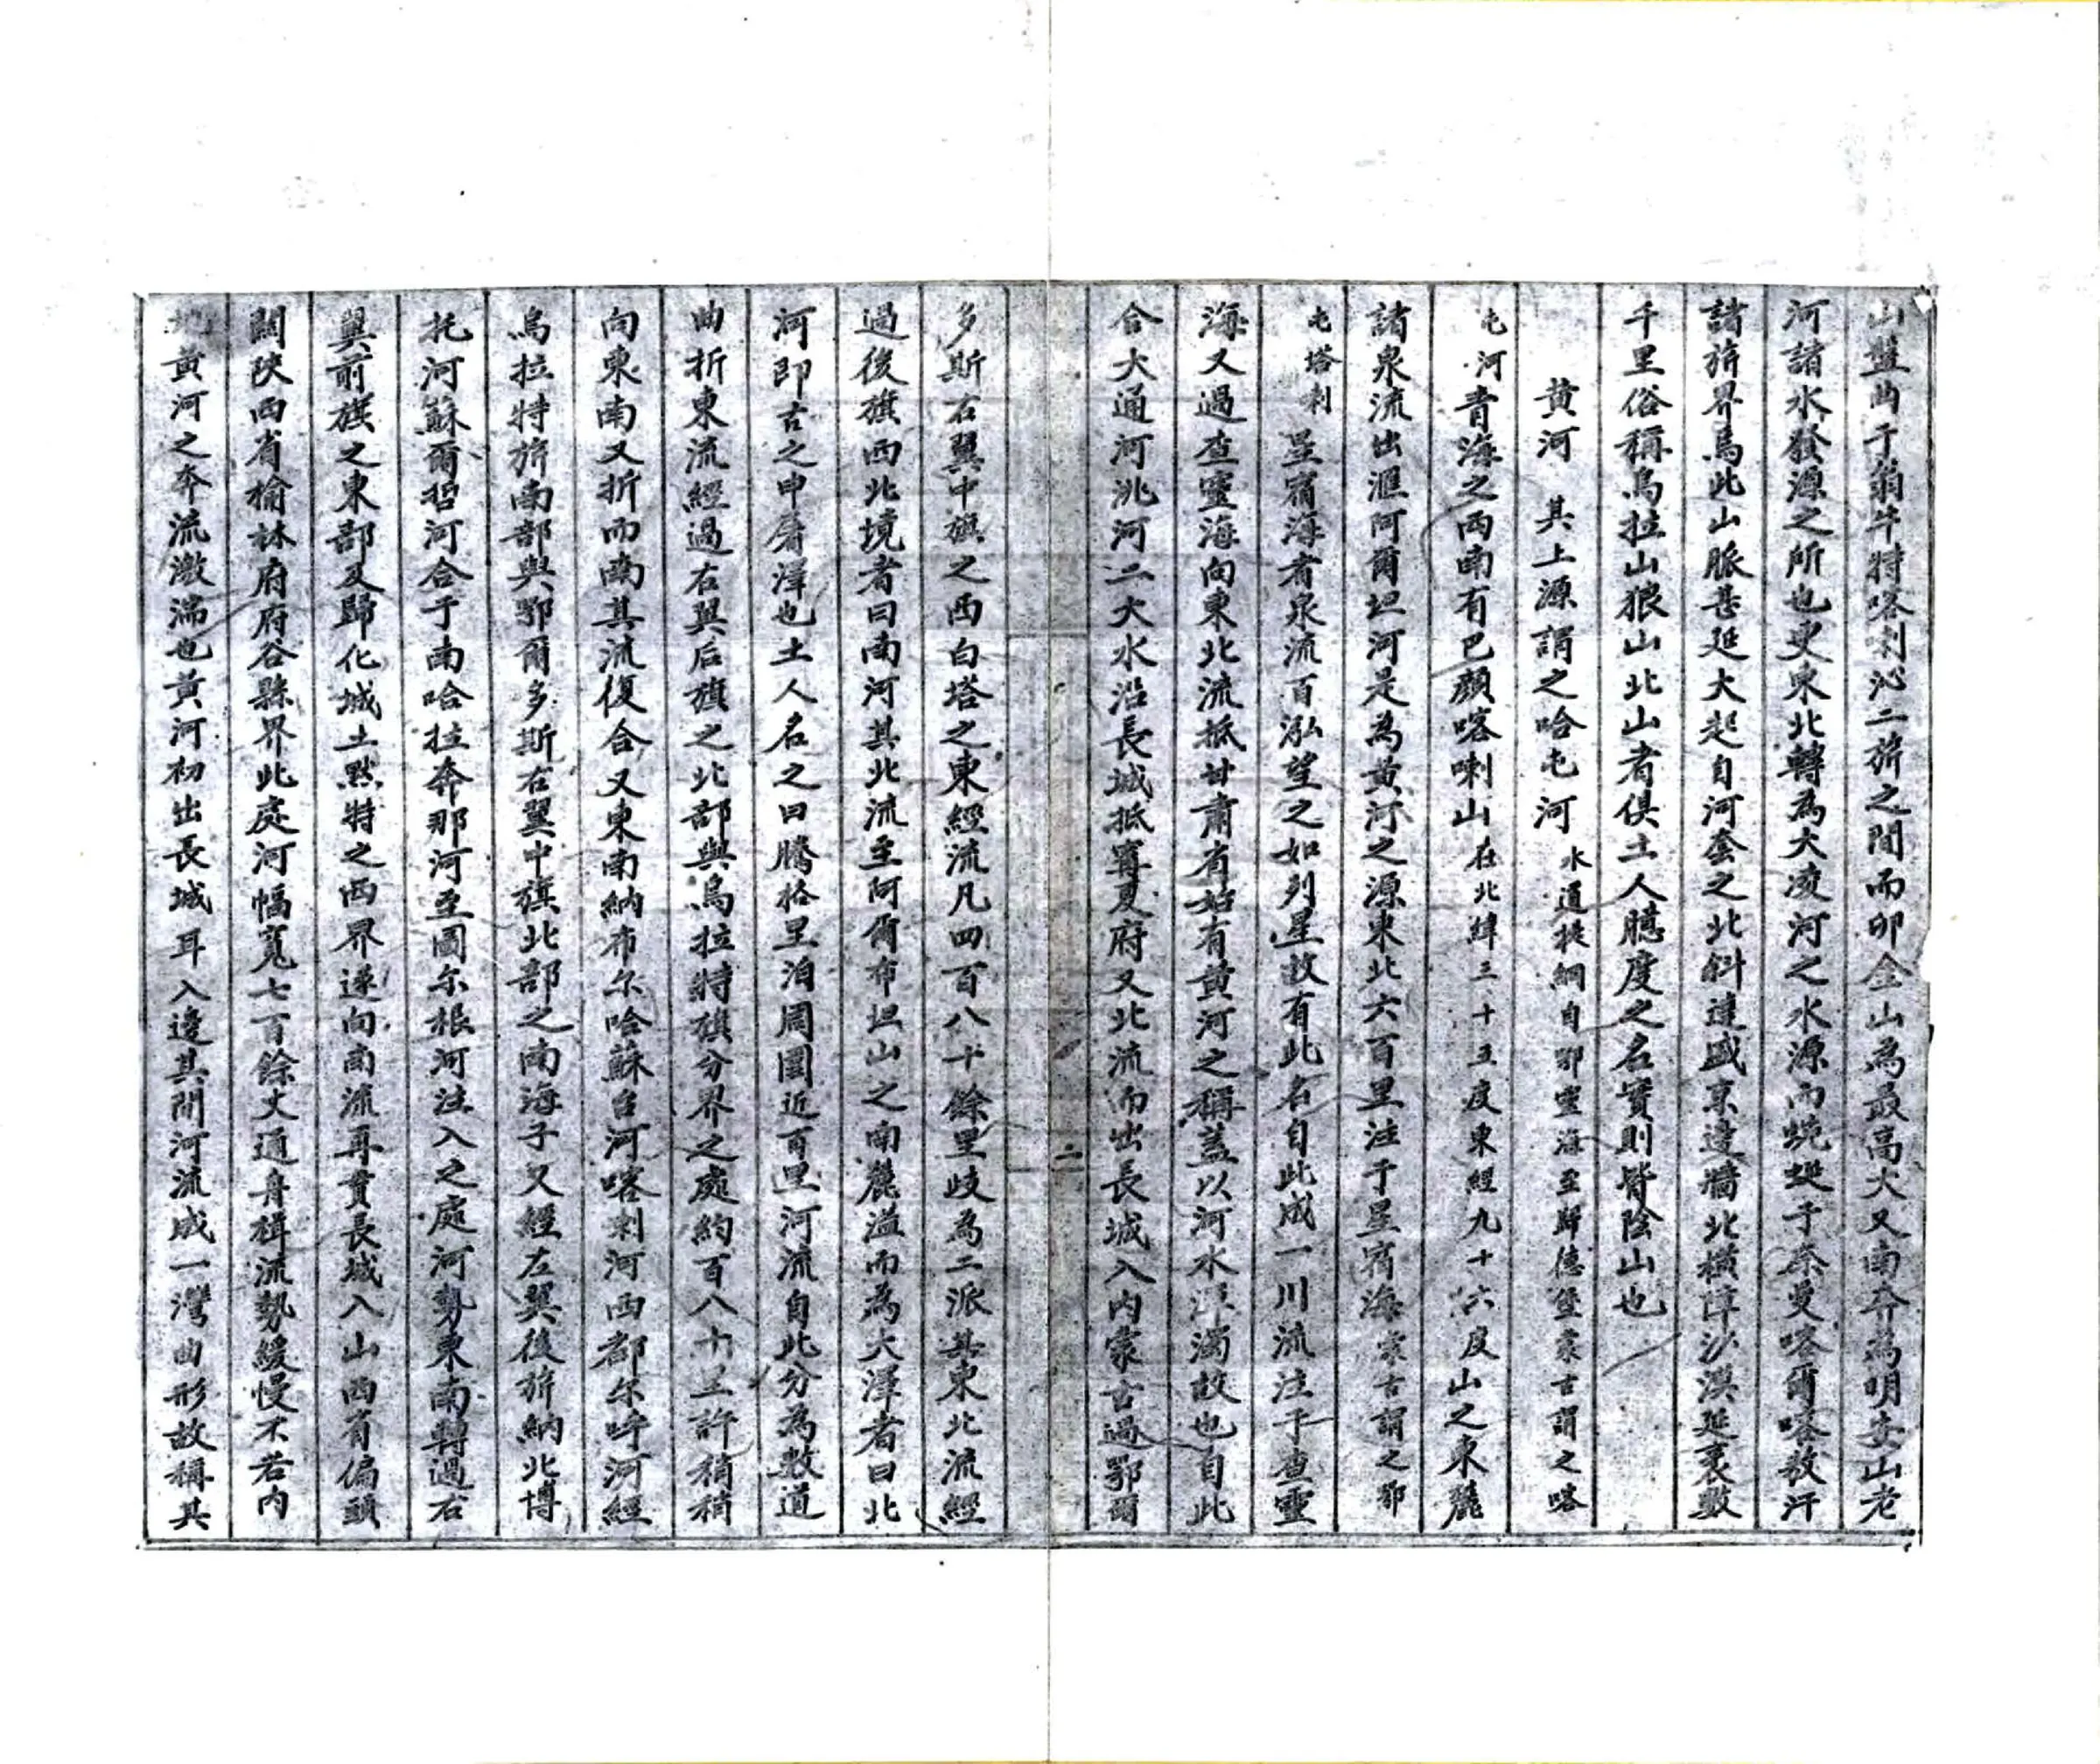 山盤曲于翁牛特喀喇沁二旂之間而卯金山為最高大又南分為明安山老
河諸水發源之所也更東北轉為大凌河之水源而蜿蜒于奈曼喀爾喀敖汗
諸旂界焉此山脈甚延大起自河套之北斜達盛京邊牆北橫漳沙漠延袤數
千里俗稱烏拉山狼山北山者俱土人臆度之名實則皆陰山也
黃河 其上源謂之哈屯河 水道提綱自鄂靈海至歸德堡蒙古謂之喀
屯河青海之西南有巴顏喀喇山在北緯三十五度東經九十六度山之東麓
諸泉流出滙阿爾坦河是為黃河之源東北六百里注于星宿海蒙古謂之鄂
屯塔剌星宿海者泉流百泓望之如列星故有此名自此成一川流注于查靈
海又過查靈海向東北流抵甘肅省始有黃河之稱蓋以河水渾濁故也自此
合大通河洮河二大水沿長城抵寗夏府又北流而出長城入內蒙古過鄂爾
二
多斯右翼中旗之西白塔之東經流凡四百八十餘里歧為二派其東北流經
過後旗西北境者曰南河其北流至阿爾布坦山之南麓溢而為大澤者曰北
河即古之申屠澤也土人名之曰騰格里泊周圍近百里河流自此分為數道
曲折東流經過右翼后旗之北部與烏拉特旗分界之處約百八十里許稍稍
向東南又折而南其流復合又東南納布尔哈蘇台河喀剌河西都尔呼河經
烏拉特旂南部與鄂爾多斯右翼中旗北部之南海子又經左翼後旂納北博
托河蘇爾哲河合于南哈拉奔那河至圖尔根河注入之處河勢東南轉過右
翼前旗之東部及歸化城土默特之西界遂向南流再貫長城入山西省偏頭
關陝西省榆林府府谷縣界此處河幅寬七百餘丈通舟楫流勢緩慢不若內
地黃河之奔流激湍也黃河初出長城耳入邊其間河流成一灣曲形故稱其